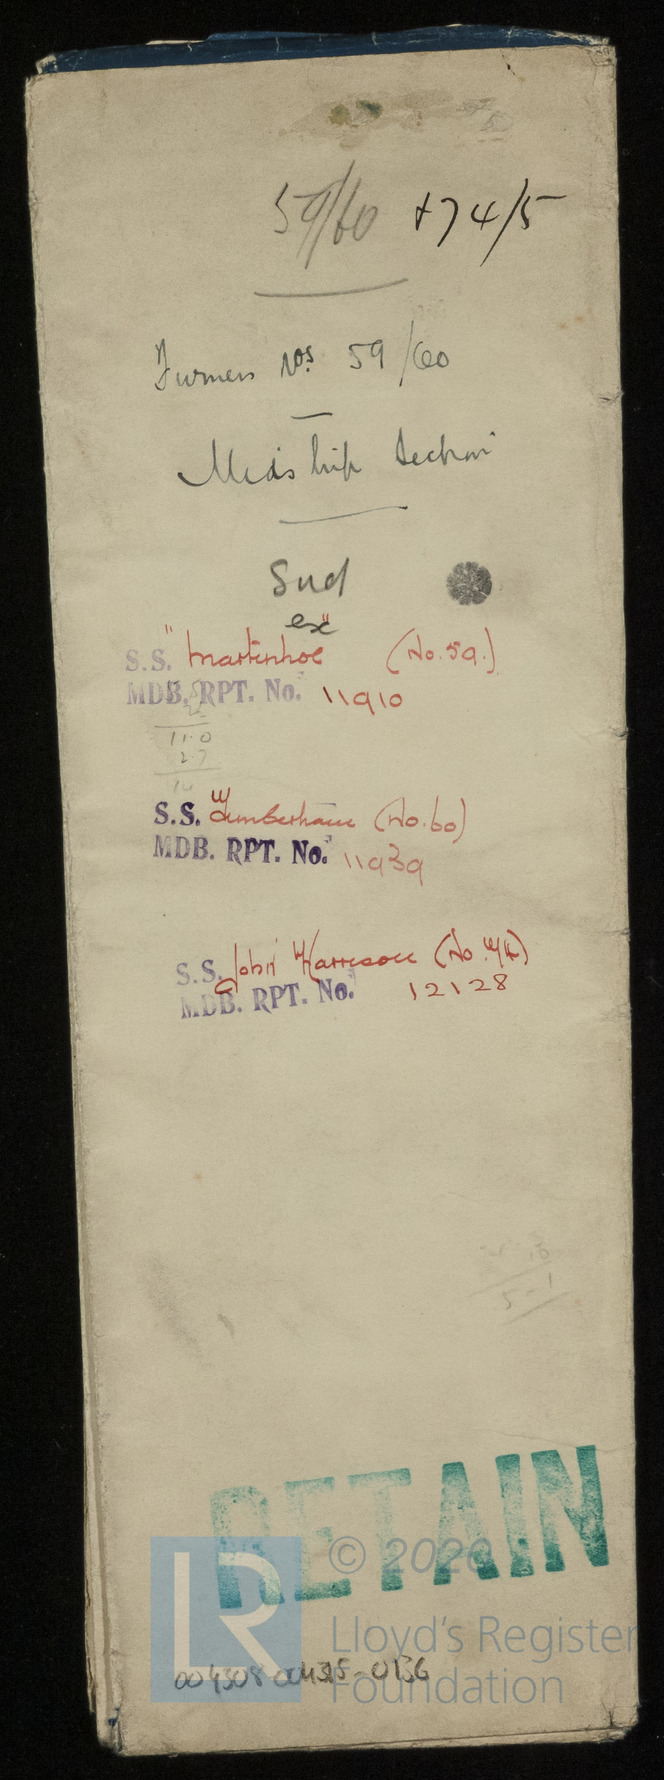 59/60 +74/5
Turners Nos 59/60
Midship Section
Sud
ex
S.S. "Martinhoe" (No. 59.)
MDB. RPT. No. 11910
11.0
2.7
S.S. (No. 60)
MDB. RPT. No. 11939
S.S. John Harrison (No. 74)
MDB. RPT. No. 12128
5-1
RETAIN
© 2020
LR
Lloyd's Register
Foundation
004308-004315-0136